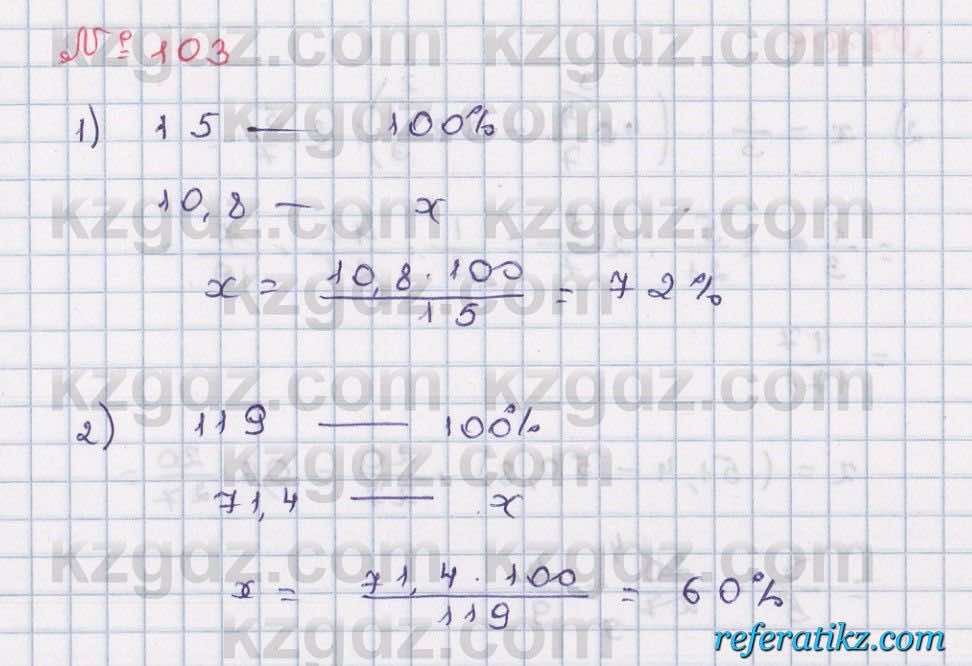 № 103
1) 15 — 100%
10,8 — x
x = 10,8 · 100 / 15 = 72%
2) 119 — 100%
71,4 — x
x = 71,4 · 100 / 119 = 60%
kzgdz.com
referatikz.com